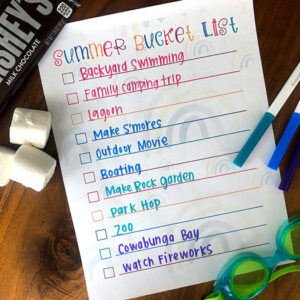 HERSHEY'S
MILK CHOCOLATE
SUMMER BUCKET LIST
Backyard Swimming
Family camping trip
Lagoon
Make S'mores
Outdoor Movie
Boating
Make Rock Garden
Park Hop
Zoo
Cowabunga Bay
Watch Fireworks